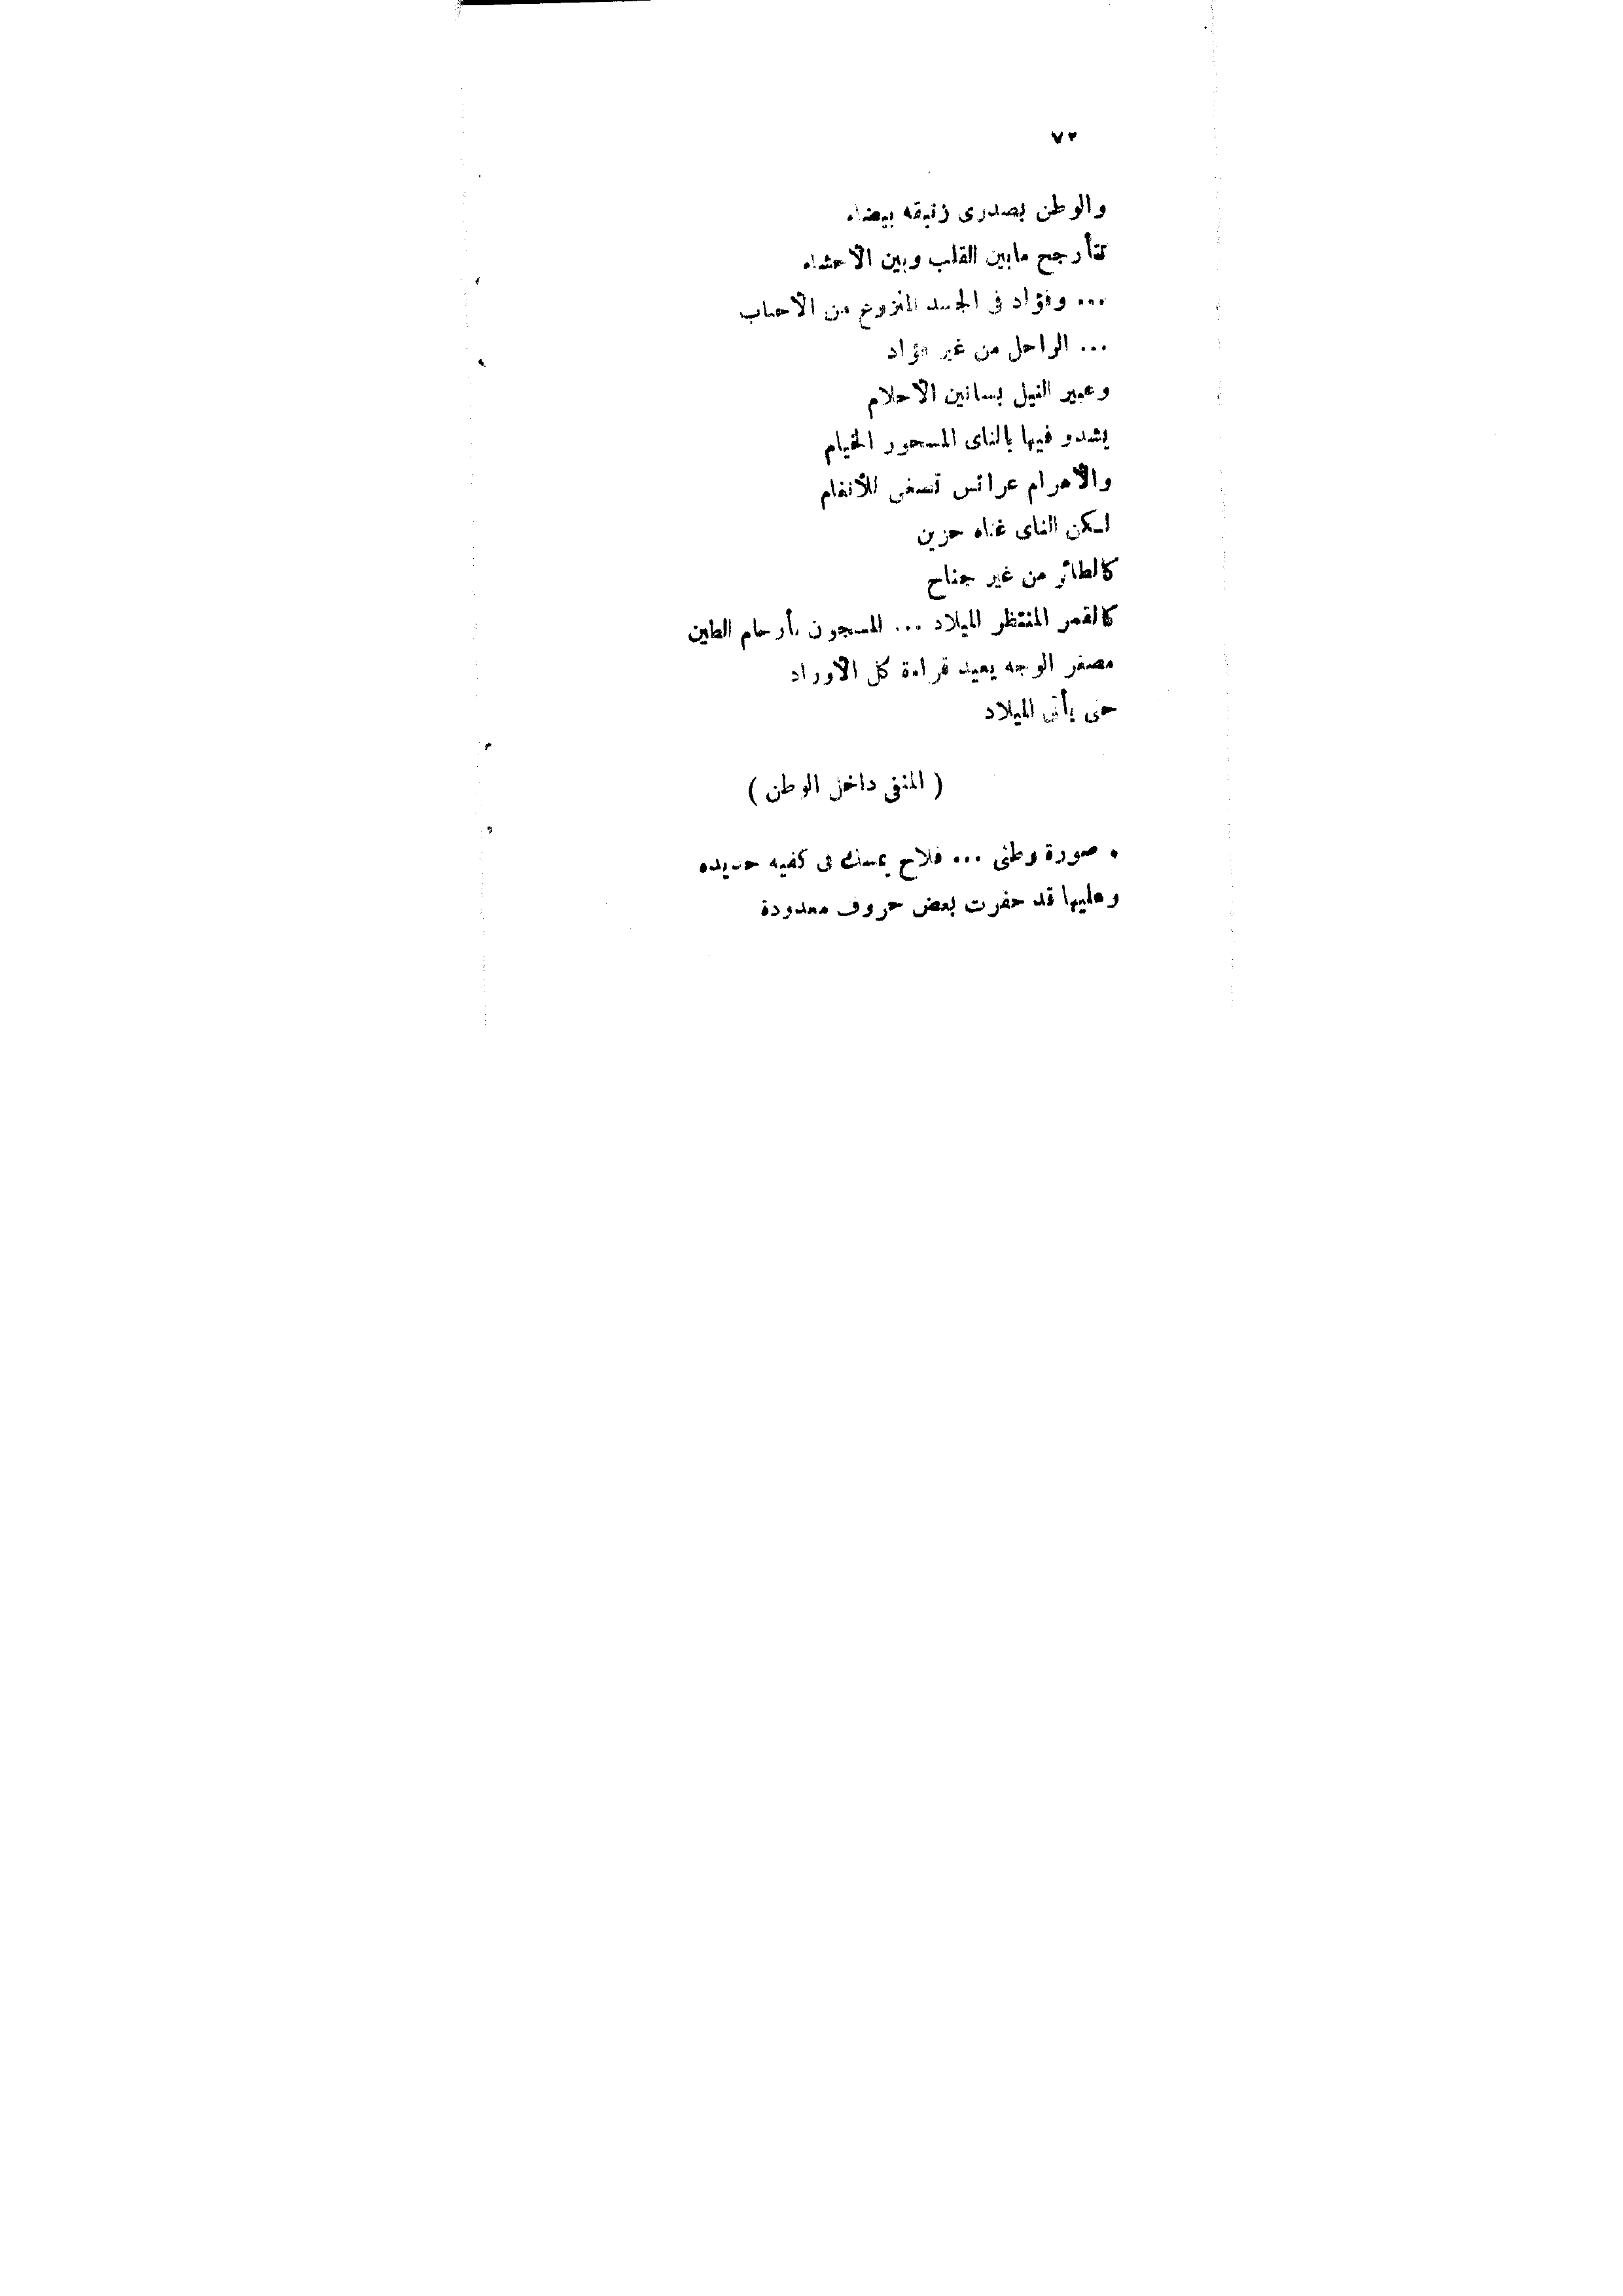 ٧٢
والوطن بصدرى زنبقه بيضاء
تتأرجح مابين القلب وبين الأحشاء
... وفؤاد فى الجسد المنزوع من الأحباب
... الراحل من غير فؤاد
وعبير النيل بساتين الأحلام
يشدو فيها بالناى المسحور الخيام
والأهرام عرائس تصغى للأنغام
لكن الناى غناه حزين
كالطائر من غير جناح
كالقمر المنتظر الميلاد ... المسجون بأرحام الطين
مصفر الوجه يعيد قراءة كل الأوراد
حتى يأتى الميلاد
( المنفى داخل الوطن )
• صورة وطنى ... فلاح يمسك فى كفيه حديده
وعليها قد حفرت بعض حروف معدودة